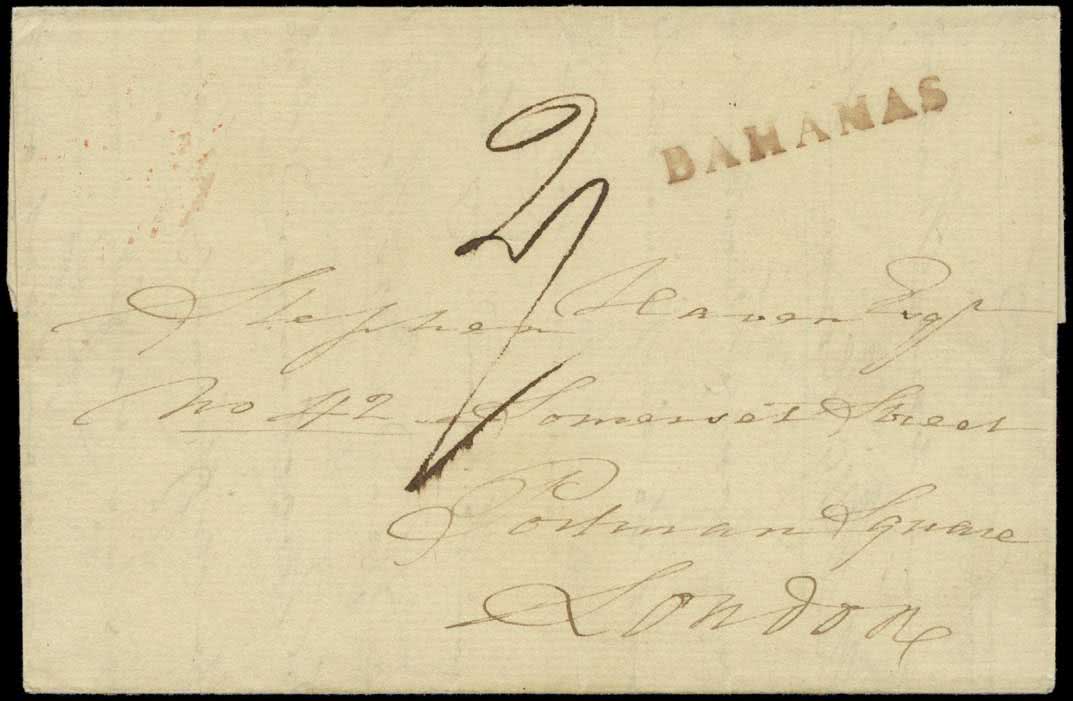 BAHAMAS
2/
Stephen Haven Esqr
No 42 Somerset Street
Portman Square
London